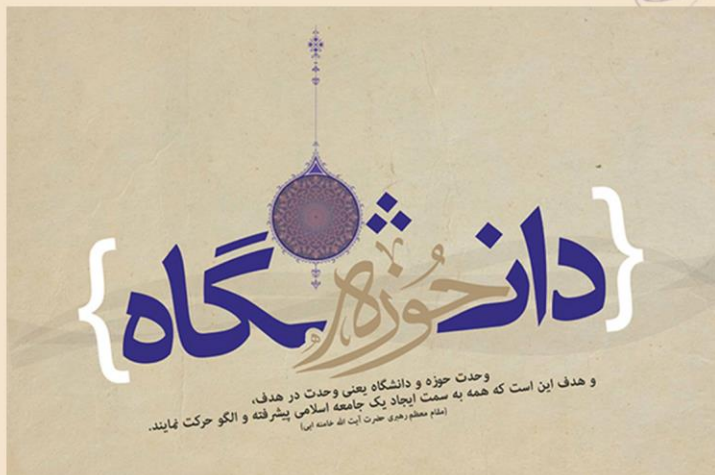 دانشگاه
حوزه
وحدت حوزه و دانشگاه یعنی وحدت در هدف،
و هدف این است که همه به سمت ایجاد یک جامعه اسلامی پیشرفته و الگو حرکت نمایند.
(مقام معظم رهبری حضرت آیت الله خامنه ایی)